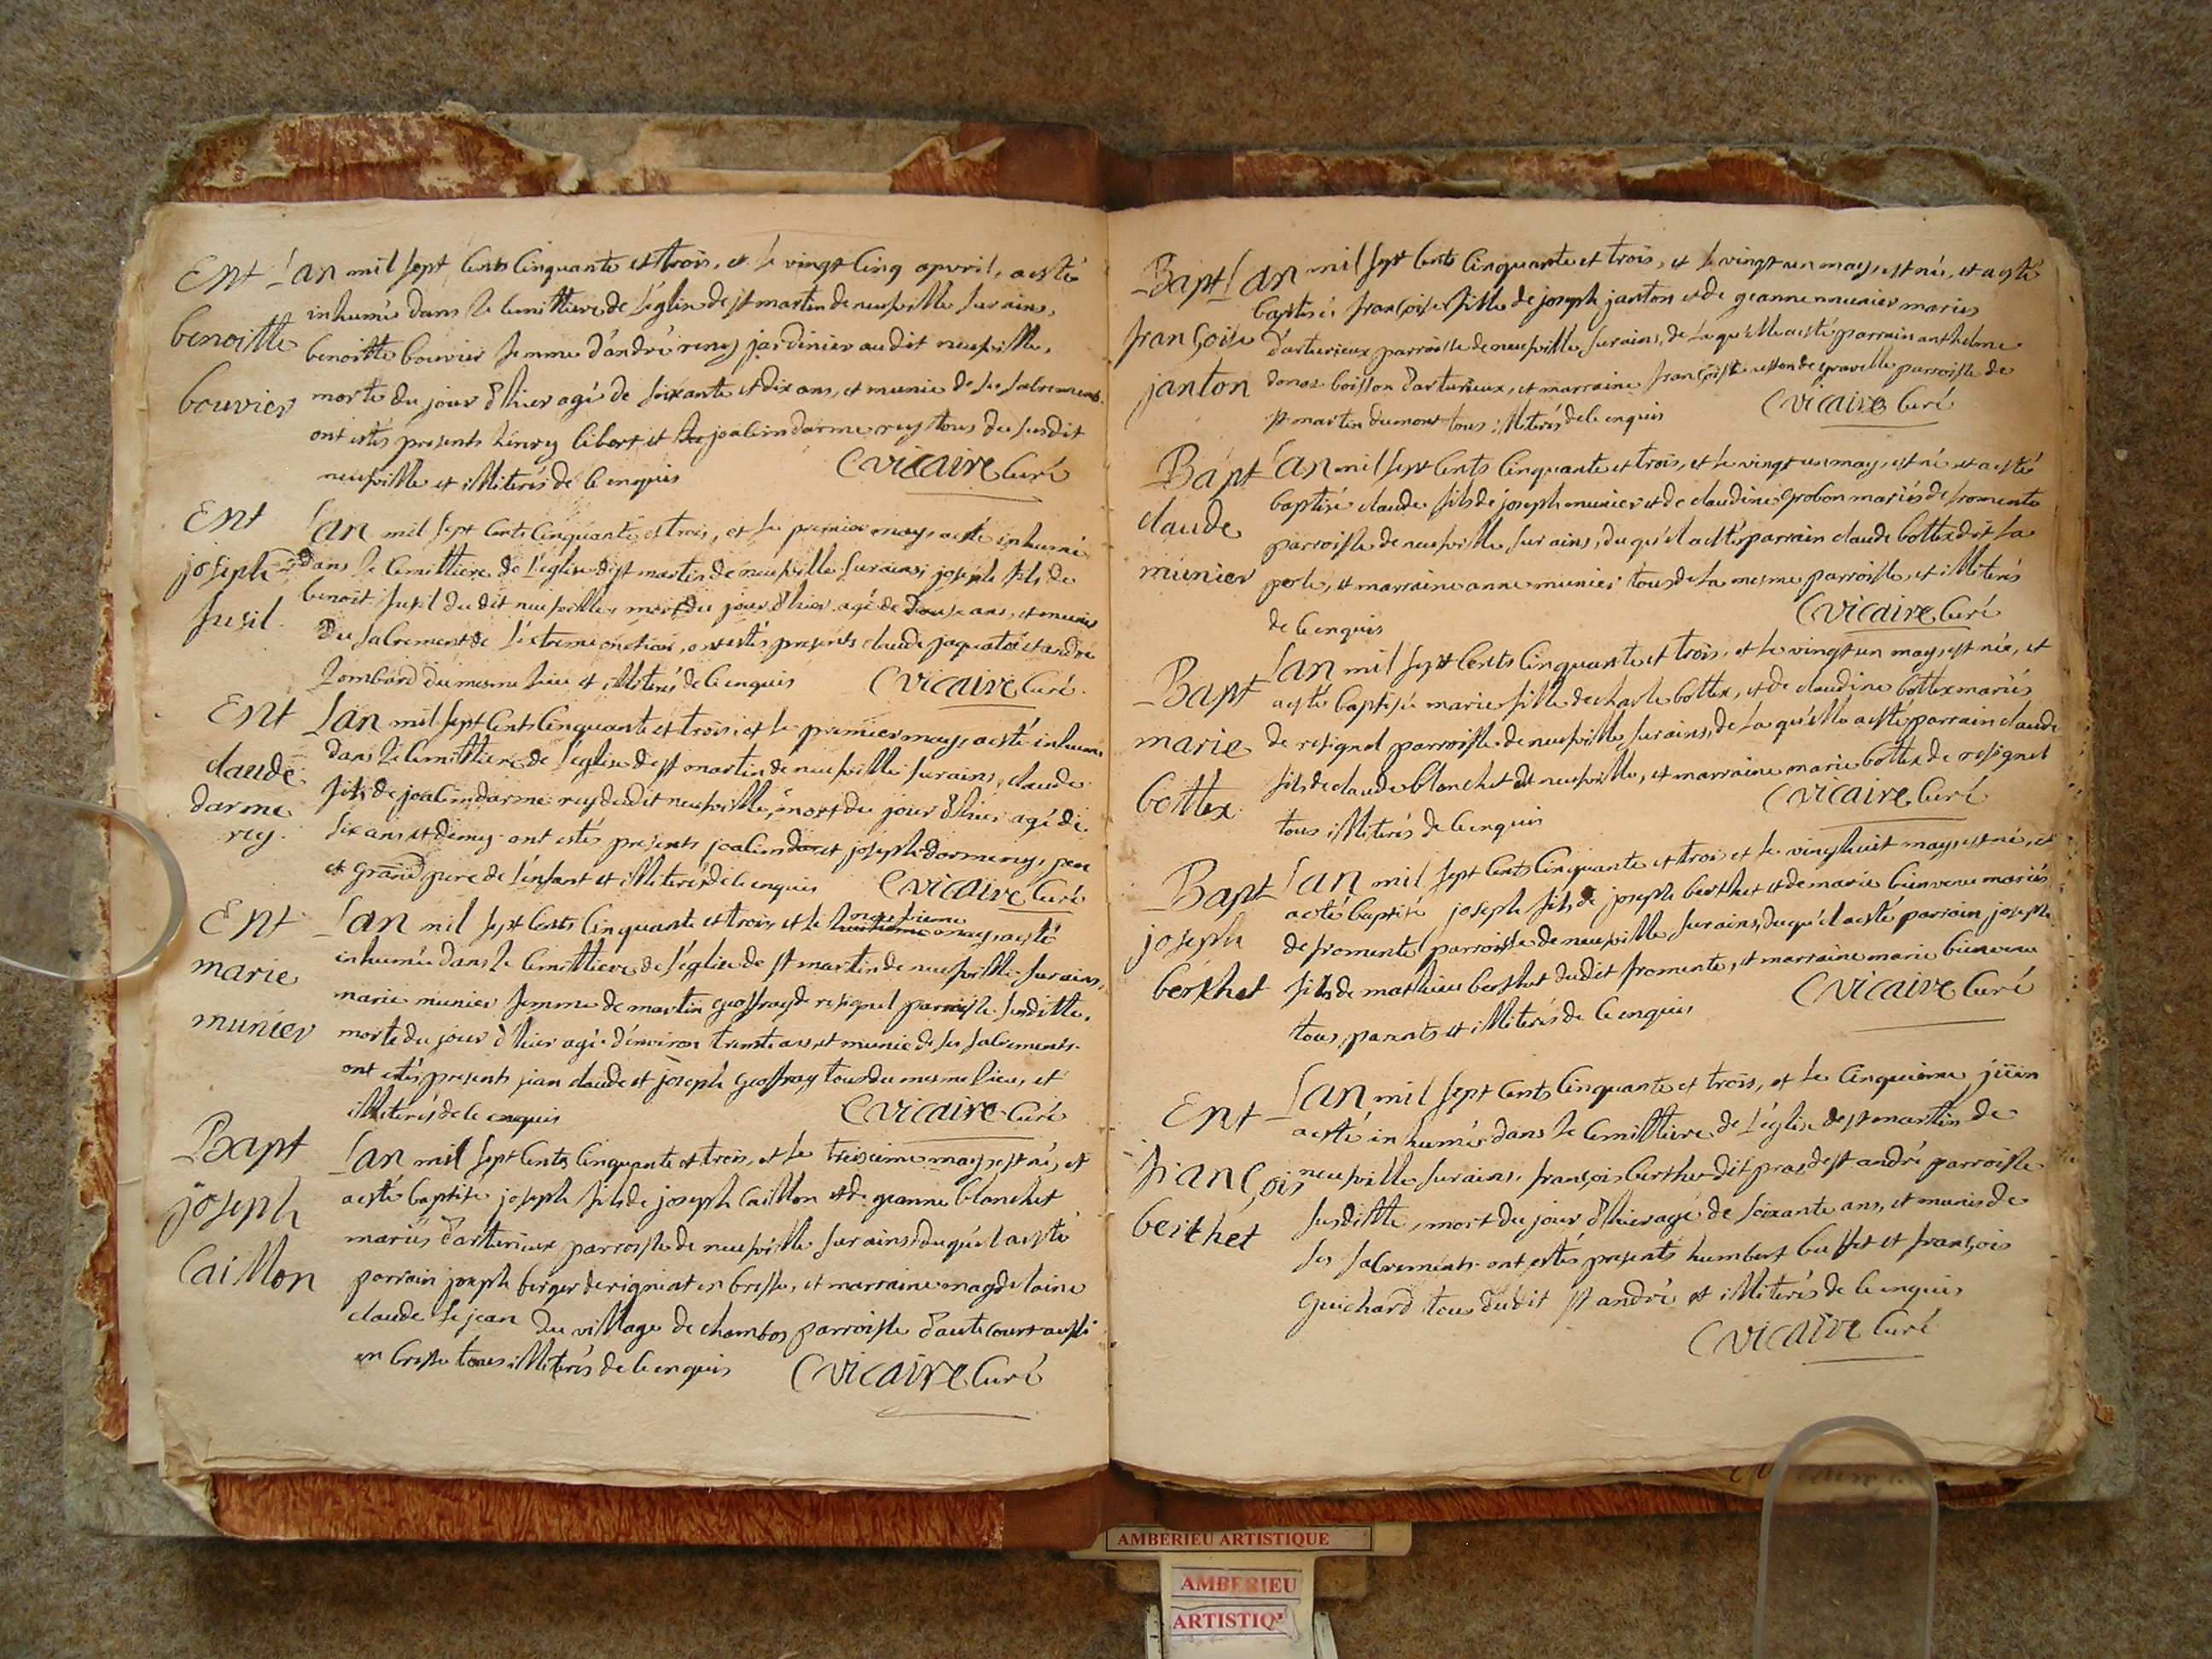 Ent
benoitte
bouvier
L'an mil sept cents cinquante et trois, et le vingt cinq apvril, a esté
inhumée dans le cemittiere de l'église de st martin de neufville sur ains,
benoitte bouvier femme d'andré reney jardinier audit neufville,
morte du jour d'hier agé de soixante et dix ans, et munie de ses sacrements
ont estés presents henry libert et joachim darmerey tous du susdit
neufville et illiterés de ce enquis
C vicaire Curé
Ent
joseph
fusil
L'an mil sept cents cinquante et trois, et le premier may, a esté inhumé
dans le cemittiere de l'église de st martin de neufville sur ains, joseph fils de
benoit fusil du dit neufville, mort du jour d'hier agé de douse ans, et munis
du sacrement de l'extreme onction, ont estés presents claude et andré
Lombard du mesme lieu et illiterés de ce enquis
C vicaire Curé.
Ent
claude
darme
rey.
L'an mil sept cents cinquante et trois, et le premier may, a esté inhumé
dans le cemittiere de l'église de st martin de neufville sur ains, claude
fils de joachim darmerey dudit neufville, mort du jour d'hier agé de
six ans et demy. ont estés presents joachim et joseph darmerey, pere
et grand pere de l'enfant et illiterés de ce enquis
C vicaire Curé
Ent
marie
munier
L'an mil sept cents cinquante et trois, et le neufvieme may, a esté
inhumée dans le cemittiere de l'église de st martin de neufville sur ains,
marie munier femme de martin geoffray de resignel parroisse susditte,
morte du jour d'hier agé d'environ trente ans, et munie de ses sacrements.
ont estés presents jean claude et joseph geoffray tous du mesme lieu, et
illiterés de ce enquis
C vicaire Curé
Bapt
joseph
Caillon
L'an mil sept cents cinquante et trois, et le treisieme may, est né, et
a esté baptisé joseph fils de joseph Caillon et de geanne blanchet
mariés d'arturieux parroisse de neufville sur ains, duqu'el a esté
parrain joseph berger de rigniat en bresse, et marraine magdelaine
claude le jean du village de chambos parroisse d'autecourt aussi
en bresse tous illiterés de ce enquis
C vicaire Curé
Bapt
françoise
janton
L'an mil sept cents cinquante et trois, et le vingt un may, est née, et a esté
baptisée françoise fille de joseph janton et de geanne munier mariés
d'arturieux parroisse de neufville sur ains, de laqu'elle a esté parrain anthelme
boisson d'arturieux, et marraine françoise de gravelle parroisse de
st martin du mont tous illiterés de ce enquis
C vicaire Curé
Bapt
claude
munier
L'an mil sept cents cinquante et trois, et le vingt un may, est né et a esté
baptisé claude fils de joseph munier et de claudine grobon mariés de fromente
parroisse de neufville sur ains, duqu'el a esté parrain claude bottex dit la
perle, et marraine anne munier tous de la mesme parroisse, et illiterés
de ce enquis
C vicaire Curé
Bapt
marie
bottex
L'an mil sept cents cinquante et trois, et le vingt un may, est née, et
a esté baptisée marie fille de charle bottex, et de claudine bottex mariés
de resignel parroisse de neufville sur ains, de laqu'elle a esté parrain claude
fils de claude blanchet de neufville, et marraine marie bottex de resignel
tous illiterés de ce enquis
C vicaire Curé
Bapt
joseph
berthet
L'an mil sept cents cinquante et trois et le vingt huit may, est né, et
a esté baptisé joseph fils de joseph berthet et de marie bienvenu mariés
de fromente parroisse de neufville sur ains, duqu'el a esté parrain joseph
fils de mathieu berthet dudit fromente, et marraine marie bienvenu
tous parents et illiterés de ce enquis
C vicaire Curé
Ent
françois
berthet
L'an mil sept cents cinquante et trois, et le cinquieme juin
a esté inhumé dans le cemittiere de l'église de st martin de
neufville sur ains, françois berthet dit pras de st andré parroisse
susditte, mort du jour d'hier agé de soixante ans, et munis de
ses sacrements. ont estés presents humbert buffet et françois
guichard tous dudit st andré et illiterés de ce enquis
C vicaire Curé
AMBERIEU ARTISTIQUE
AMBERIEU
ARTISTIQ